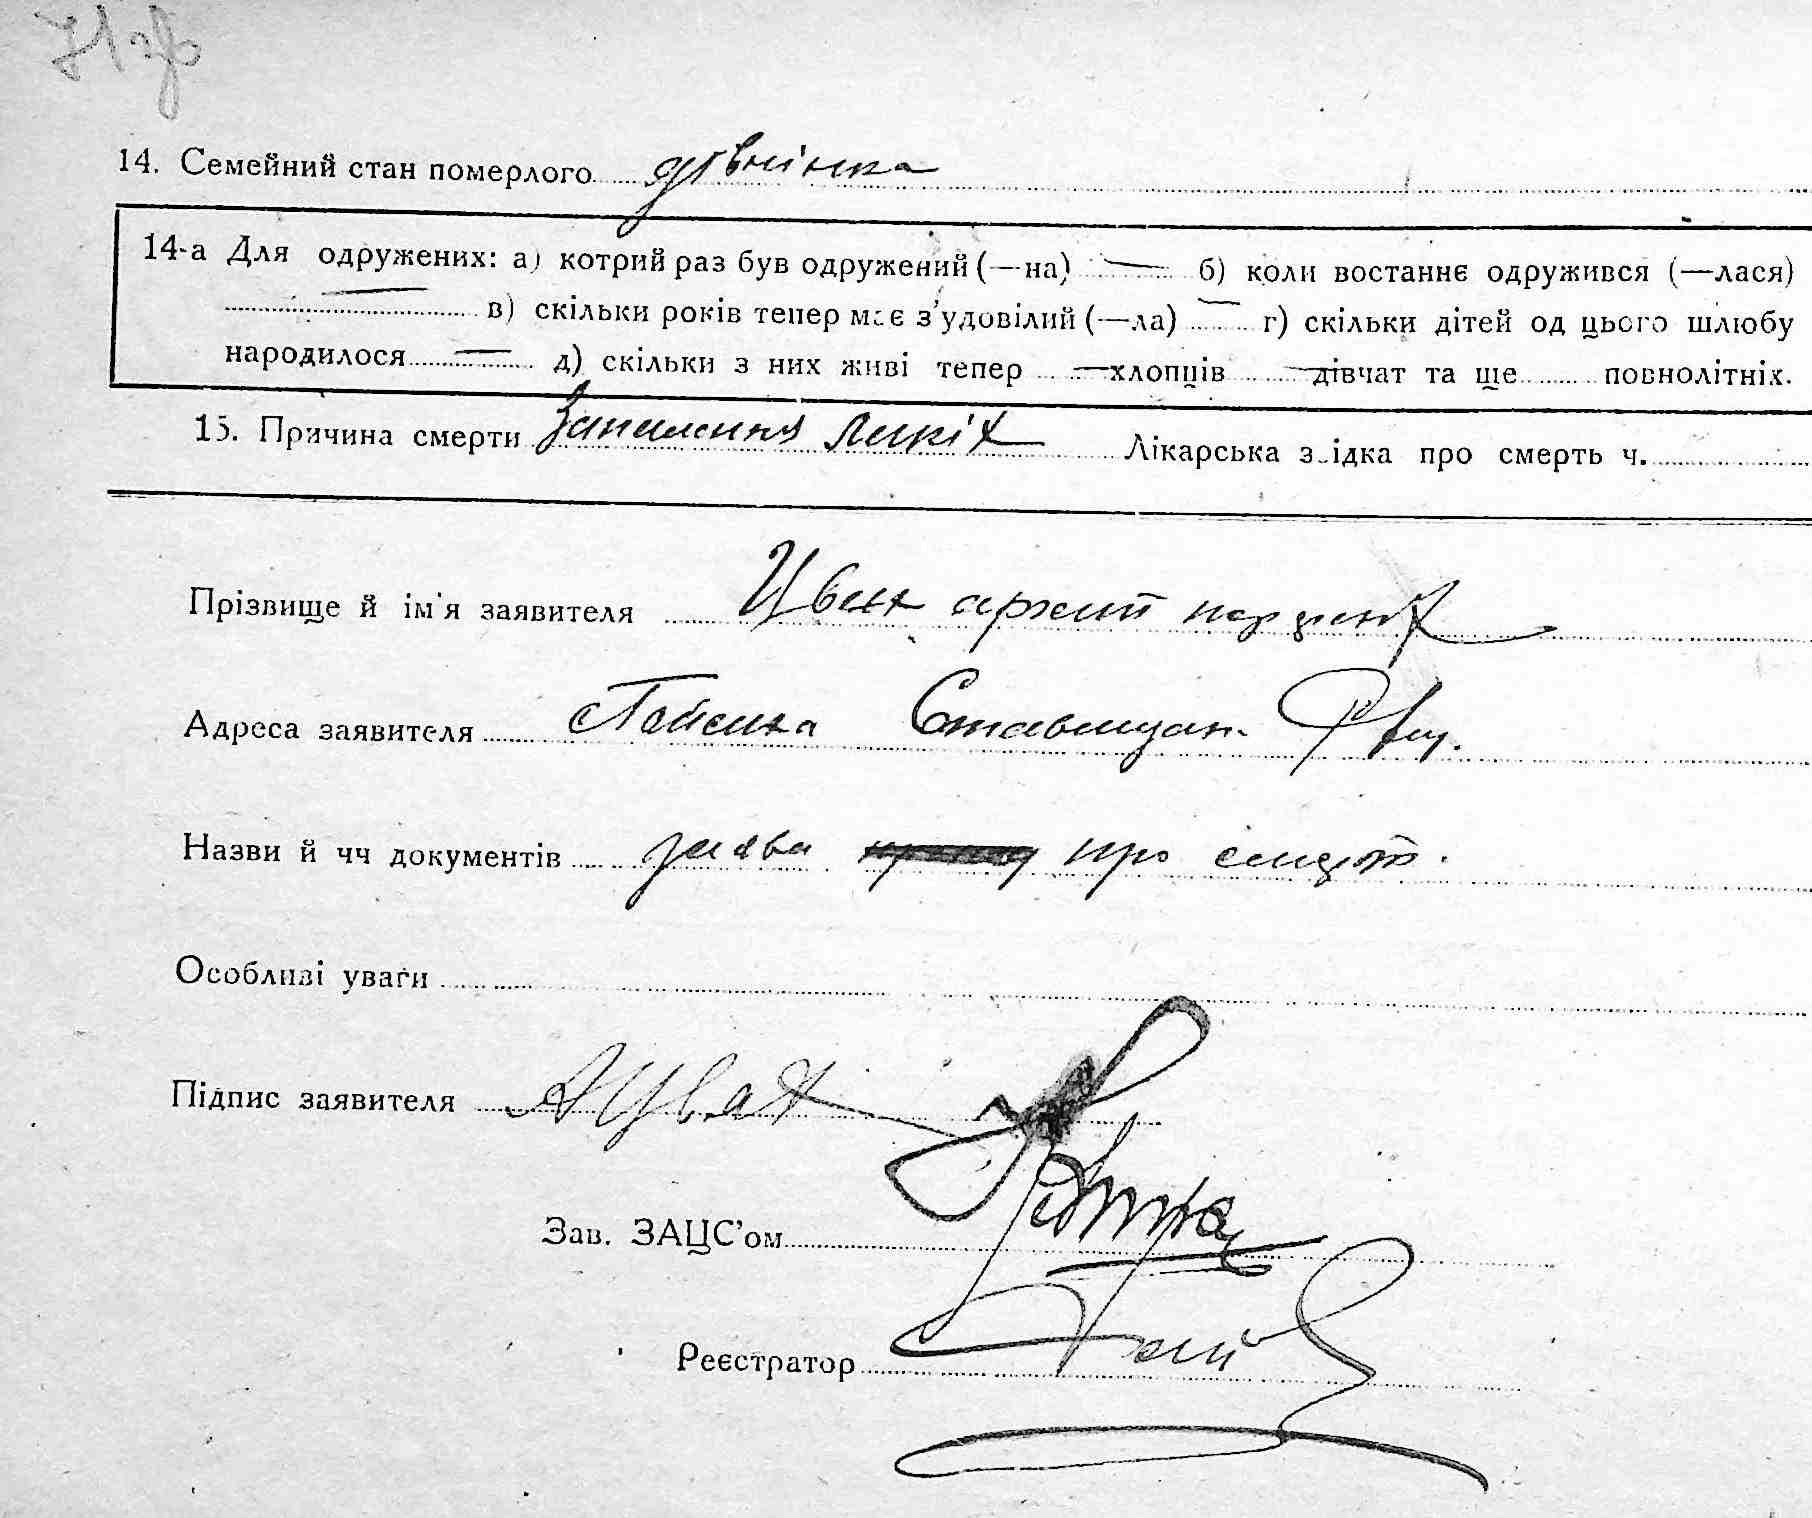 14. Семейний стан померлого дівчінка
14-а Для одружених: а) котрий раз був одружений (—на) — б) коли востаннє одружився (—лася)
— в) скільки років тепер має з'удовілий (—ла) — г) скільки дітей од цього шлюбу
народилося — д) скільки з них живі тепер — хлопців — дівчат та ще повнолітніх.
15. Причина смерти Запалення Лигких Лікарська звідка про смерть ч.
Прізвище й ім'я заявителя Цвях
Адреса заявителя Ставищан.
Назви й чч документів заява про смерть.
Особливі уваги
Підпис заявителя АЦвях
Зав. ЗАЦС'ом
Реєстратор